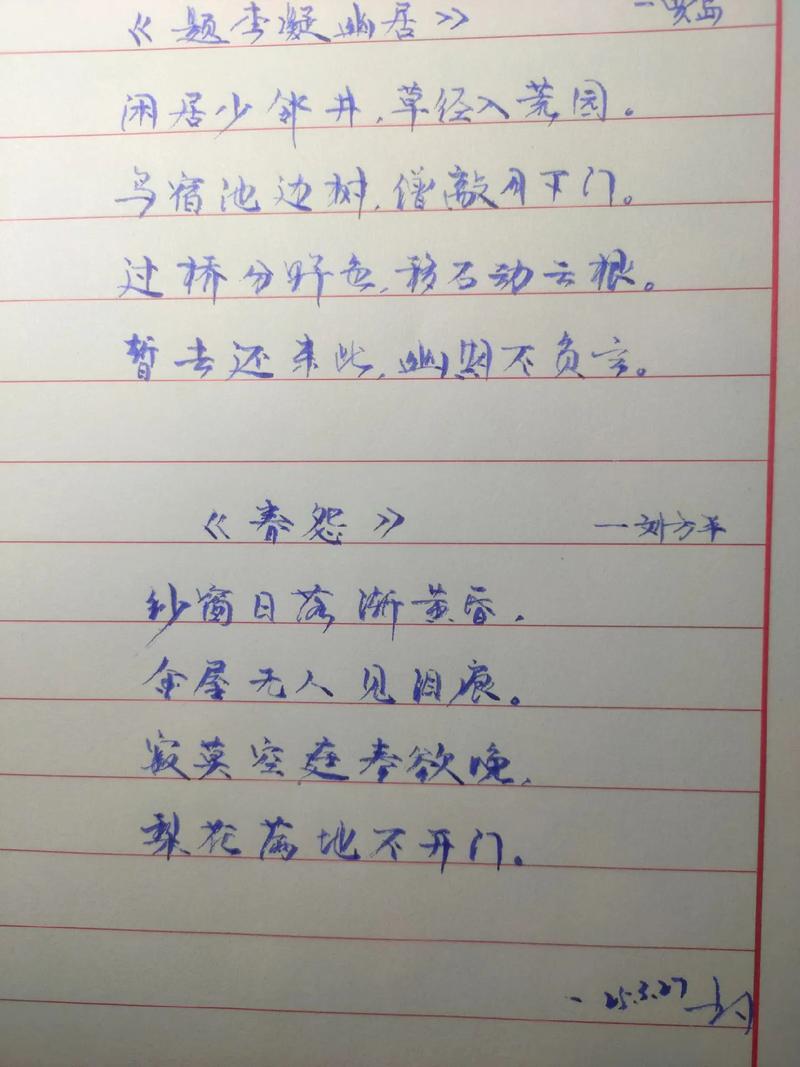 《题李凝幽居》 —贾岛
闲居少邻井,草径入荒园。
鸟宿池边树,僧敲月下门。
过桥分野色,移石动云根。
暂去还来此,幽期不负言。
《春怨》 —刘方平
纱窗日落渐黄昏,
金屋无人见泪痕。
寂莫空庭春欲晚,
梨花满地不开门。
- 25.3.27